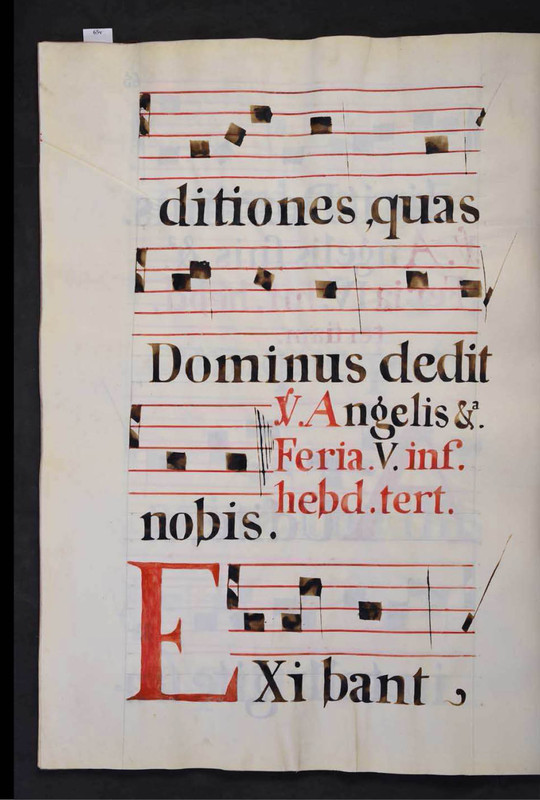 ditiones, quas
Dominus dedit
℣. Angelis &ᵃ.
Feria. V. inf.
hebd. tert.
nobis.
EXibant,